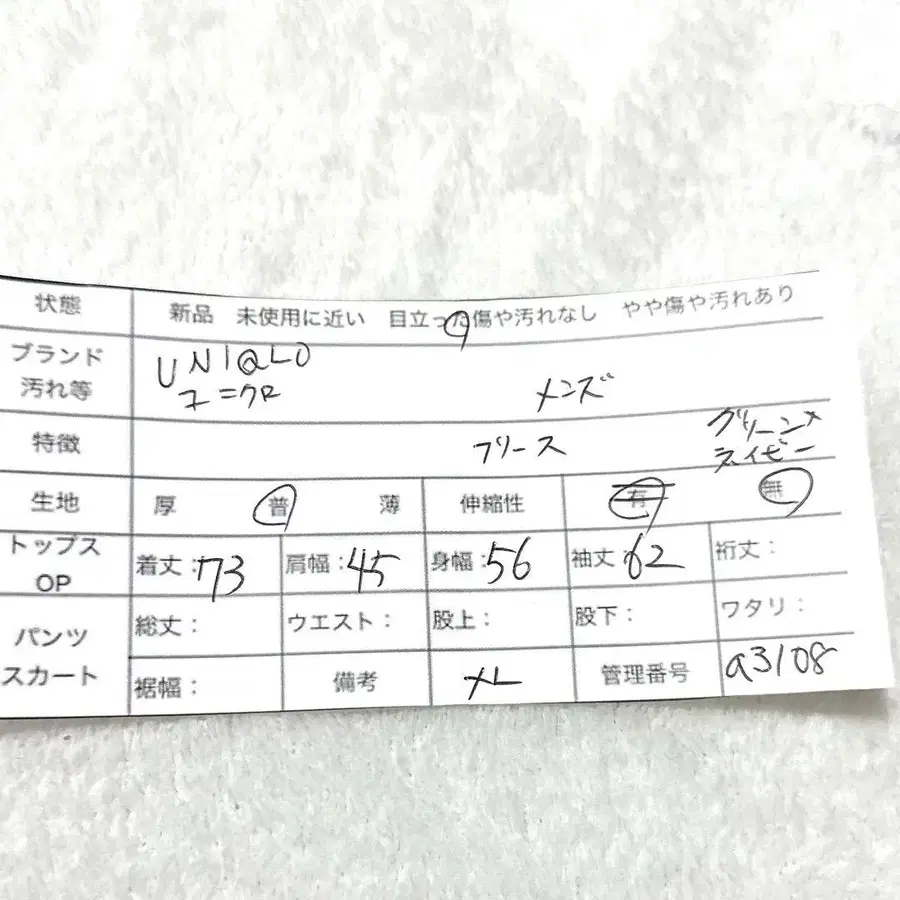 状態 新品 未使用に近い 目立った傷や汚れなし やや傷や汚れあり
ブランド UNIQLO
汚れ等 ユニクロ メンズ
特徴 フリース グリーン×
ネイビー
生地 厚 普 薄 伸縮性 有 無
トップス 着丈:73 肩幅:45 身幅:56 袖丈:62 裄丈:
OP
パンツ 総丈: ウエスト: 股上: 股下: ワタリ:
スカート 裾幅: 備考 XL 管理番号 a3108